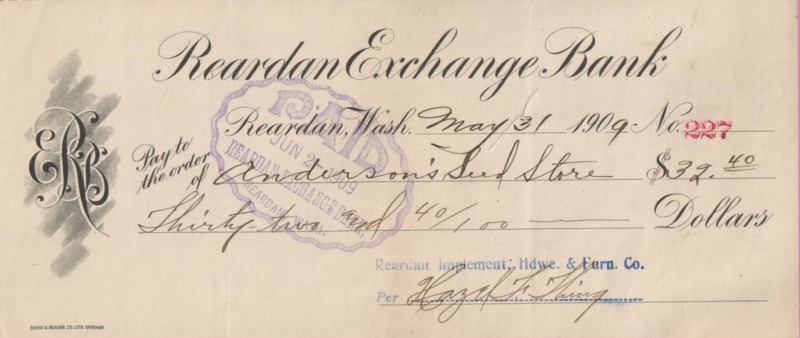 Reardan Exchange Bank
Reardan, Wash. May 31 1909 No. 227
Pay to the order of Anderson's Seed Store $32.40
Thirty two and 40/100 Dollars
PAID
JUN 2 1909
REARDAN EXCHANGE BANK,
REARDAN, WASH.
Reardan Implement, Hdwe. & Furn. Co.
Per Hazel F. Thing
ERB